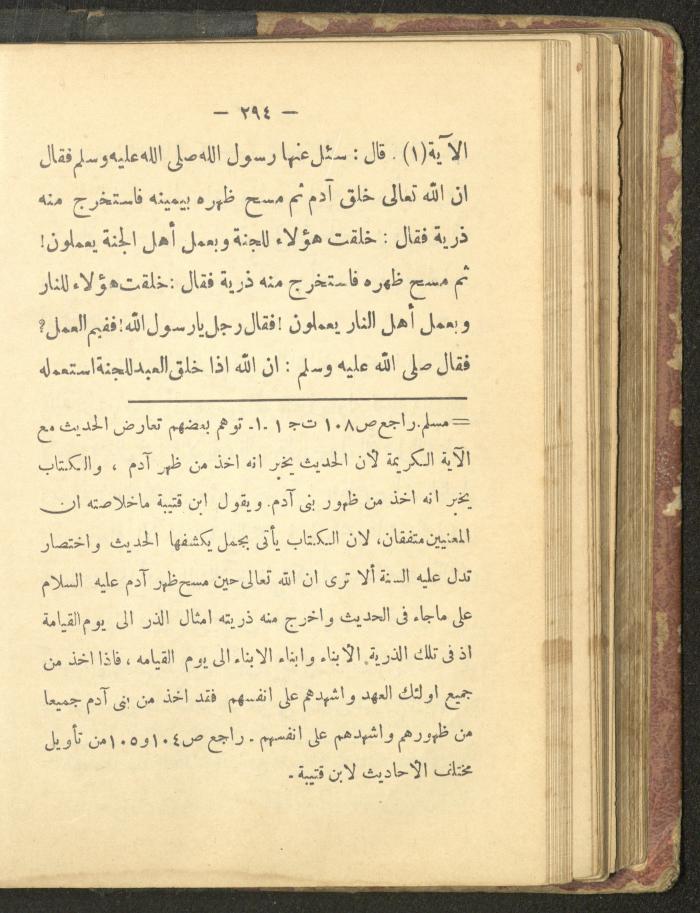 — ٢٩٤ —
الآية(١) . قال : سئل عنها رسول الله صلى الله عليه وسلم فقال
ان الله تعالى خلق آدم ثم مسح ظهره بيمينه فاستخرج منه
ذرية فقال : خلقت هؤلاء للجنة وبعمل أهل الجنة يعملون!
ثم مسح ظهره فاستخرج منه ذرية فقال :خلقت هؤلاء للنار
وبعمل أهل النار يعملون !فقال رجل يارسول الله!ففيم العمل؟
فقال صلى الله عليه وسلم : ان الله اذا خلق العبد للجنة استعمله
= مسلم.راجع ص١٠٨ ت ج ١ـ١ـ توهم بعضهم تعارض الحديث مع
الآية الكريمة لأن الحديث يخبر انه اخذ من ظهر آدم ، والكتاب
يخبر انه اخذ من ظهور بنى آدم. ويقول ابن قتيبة ماخلاصته ان
المعنيين متفقان، لان الكتاب يأتى بجمل يكشفها الحديث واختصار
تدل عليه السنة ألا ترى ان الله تعالى حين مسح ظهر آدم عليه السلام
على ماجاء فى الحديث واخرج منه ذريته امثال الذر الى يوم القيامة
اذ فى تلك الذرية الأبناء وابناء الابناء الى يوم القيامه ، فاذا اخذ من
جميع اولئك العهد واشهدهم على انفسهم فقد اخذ من بنى آدم جميعا
من ظهورهم واشهدهم على انفسهم . راجع ص١٠٤و١٠٥من تأويل
مختلف الأحاديث لابن قتيبة .